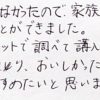 なかったので、家族
とができました。
ットで調べて講入
より、おいしかった
すのたいと思いま